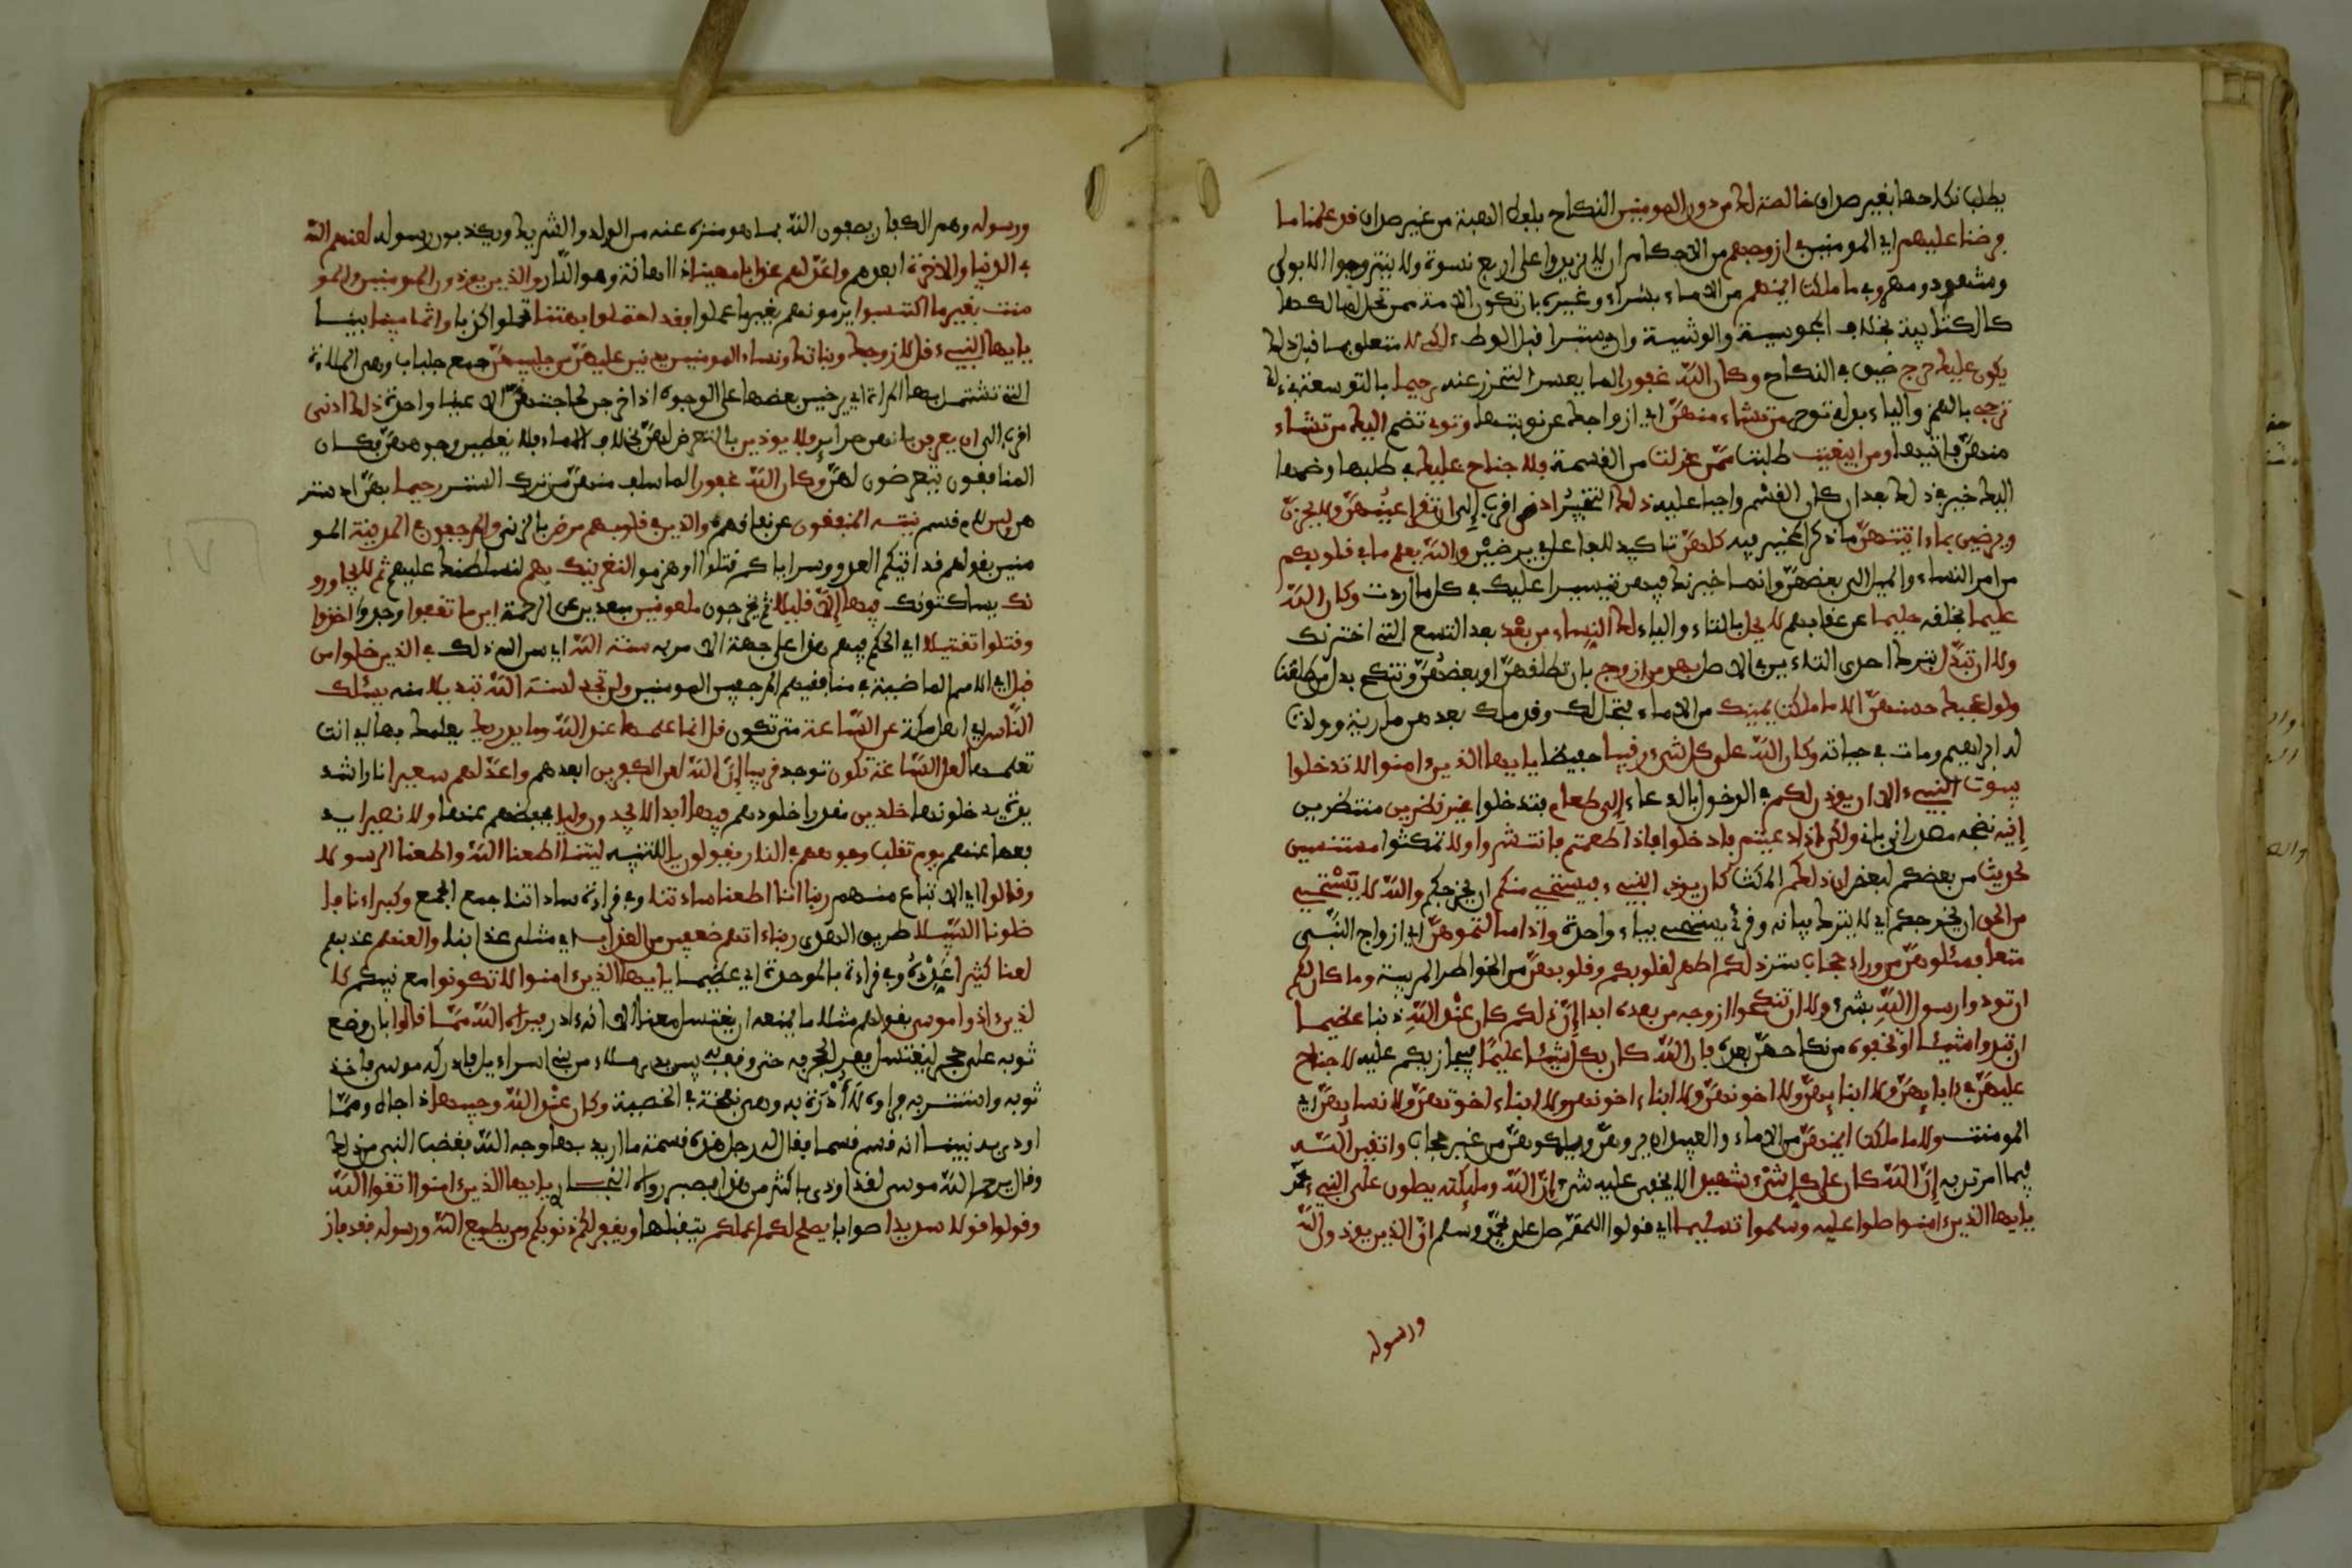 يطلب نكاحها بغير صداق خالصة لك من دون المومنين النكاح بلفظ الهبة من غير صداق قد علمنا ما
فرضنا عليهم اي المومنين في ازوجهم من الاحكام ان لا يزيدوا على اربع نسوة ولا يتزوجوا الا بولي
وشهود ومهر وفي ما ملكت ايمنهم من الاماء بشراء وغيره بان تكون الامة ممن تحل لمالكها
كالكتابية بخلاف المجوسية والوثنية وان تستبرا قبل الوطء لكي لا متعلق بما قبل ذلك
يكون عليك حرج ضيق في النكاح وكان الله غفورا لما يعسر التحرز عنه رحيما بالتوسعة في ذلك
ترجي بالهمز والياء بدله توخر من تشاء منهن اي ازواجك عن نوبتها وتوي تضم اليك من تشاء
منهن فتاتيها ومن ابتغيت طلبت ممن عزلت من القسمة فلا جناح عليك في طلبها وضمها
اليك خير في ذلك بعد ان كان القسم واجبا عليه ذلك التخيير ادنى اقرب إلى ان تقر اعينهن ولا يحزن
ويرضين بما ءاتيتهن ما ذكر المخير فيه كلهن تاكيد للفاعل في يرضين والله يعلم ما في قلوبكم
من امر النساء والميل الى بعضهن وانما خيرنك فيهن تيسيرا عليك في كل ما اردت وكان الله
عليما بخلقه حليما عن عقابهم لا يحل بالتاء والياء لك النساء من بعد بعد التسع التي اخترنك
ولا ان تبدل بترك احدى التاءين في الاصل بهن من ازوج بان تطلقهن او بعضهن وتنكح بدل من طلقت
ولو اعجبك حسنهن الا ما ملكت يمينك من الاماء فتحل لك وقد ملك بعدهن مارية وولدت
له ابراهيم ومات في حياته وكان الله على كل شيء رقيبا حفيظا يايها الذين ءامنوا لا تدخلوا
بيوت النبيء الا ان يوذن لكم في الدخول بالدعاء إلى طعام فتدخلوا غير نظرين منتظرين
إنيه نضجه مصدر انى يانى ولكن اذا دعيتم فادخلوا فاذا طعمتم فانتشروا ولا تمكثوا مستنسين
لحديث من بعضكم لبعض ان ذلكم المكث كان يوذي النبيء فيستحيي منكم ان يخرجكم والله لا يستحيي
من الحق ان يخرجكم اي لا يترك بيانه وقرئ يستحي بياء واحدة واذا سالتموهن اي ازواج النبي
متعا فسئلوهن من وراء حجاب ستر ذلكم اطهر لقلوبكم وقلوبهن من الخواطر المريبة وما كان لكم
ان توذوا رسول الله بشيء ولا ان تنكحوا ازوجه من بعده ابدا إن ذلكم كان عند الله ذنبا عظيما
ان تبدوا شيئا او تخفوه من نكاحهن بعده فان الله كان بكل شيء عليما فيجازيكم عليه لا جناح
عليهن في ءابايهن ولا ابنايهن ولا اخونهن ولا ابناء اخونهن ولا ابناء اخوتهن ولا نسايهن اي
المومنت ولا ما ملكت ايمنهن من الاماء والعبيد ان يروهن ويكلموهن من غير حجاب واتقين الله
فيما امرتن به إن الله كان على كل شيء شهيدا لا يخفى عليه شيء إن الله ومليكته يصلون على النبيء محمد
يايها الذين ءامنوا صلوا عليه وسلموا تسليما اي قولوا اللهم صل على محمد وسلم ان الذين يوذون الله
ورسوله
ورسوله وهم الكفار يصفون الله بما هو منزه عنه من الولد والشريك ويكذبون رسوله لعنهم الله
في الدنيا والاخرة ابعدهم واعد لهم عذابا مهينا ذا اهانة وهو النار والذين يوذون المومنين والمو
منت بغير ما اكتسبوا يرمونهم بغير ما عملوا فقد احتملوا بهتنا تحملوا كذبا واثما مبينا بينا
يايها النبيء قل لازوجك وبناتك ونساء المومنين يدنين عليهن من جلبيبهن جمع جلباب وهي الملاءة
التي تشتمل بها المراة اي يرخين بعضها على الوجوه اذا خرجن لحاجتهن الا عينا واحدة ذلك ادنى
اقرب الى ان يعرفن بانهن حراير فلا يوذين بالتعرض لهن بخلاف الاماء فلا يغطين وجوههن فكان
المنافقون يتعرضون لهن وكان الله غفورا لما سلف منهن من ترك الستر رحيما بهن اذ ستر
هن لين لام قسم لم ينته المنفقون عن نفاقهم والذين في قلوبهم مرض بالزنى والمرجفون في المدينة المو
منين بقولهم قد اتيكم العدو وسراياكم قتلوا او هزموا لنغرينك بهم لنسلطنك عليهم ثم لا يجاورو
نك يساكنونك فيها إلا قليلا ثم يخرجون ملعونين مبعدين عن الرحمة اين ما ثقفوا وجدوا اخذوا
وقتلوا تقتيلا اي الحكم فيهم هذا على جهة الامر به سنة الله اي سن الله ذلك في الذين خلوا من
قبل اي الامم الماضية في منافقيهم المرجفين المومنين ولن تجد لسنة الله تبديلا منه يسئلك
الناس اي اهل مكة عن الساعة متى تكون قل انما علمها عند الله وما يدريك يعلمك بها اي انت
تعلمها لعل الساعة تكون توجد قريبا إن الله لعن الكفرين ابعدهم واعد لهم سعيرا نارا شد
يدة يدخلونها خلدين مقدرا خلودهم فيها ابدا لا يجدون وليا يحفظهم عنها ولا نصيرا يد
فعها عنهم يوم تقلب وجوههم في النار يقولون يا للتنبيه ليتنا اطعنا الله واطعنا الرسولا
وقالوا اي الاتباع منهم ربنا انا اطعنا سادتنا وفي قراءة ساداتنا جمع الجمع وكبراءنا فا
ضلونا السبيلا طريق الهدى ربنا ءاتهم ضعفين من العذاب اي مثلى عذابنا والعنهم عذبهم
لعنا كثيرا عدده وفي قراءة بالموحدة اي عظيما يايها الذين ءامنوا لا تكونوا مع نبيكم كا
لذين ءاذوا موسى بقولهم مثلا ما يمنعه ان يغتسل معنا الا انه ءادر فبراه الله مما قالوا بان وضع
ثوبه على حجر ليغتسل ففر الحجر به حتى وقف به بين يدي ملاء من بني اسراءيل فادركه موسى فاخذ
ثوبه واستتر به فراوه لا أدرة به وهي نفخة في الخصية وكان عند الله وجيها ذا جاه ومما
اوذي به نبينا انه قسم قسما فقال له رجل هذه قسمة ما اريد بها وجه الله فغضب النبي من ذلك
وقال يرحم الله موسى لقد اوذي باكثر من هذا فصبر رواه البخاري يايها الذين ءامنوا اتقوا الله
وقولوا قولا سديدا صوابا يصلح لكم اعملكم يتقبلها ويغفر لكم ذنوبكم ومن يطع الله ورسوله فقد فاز